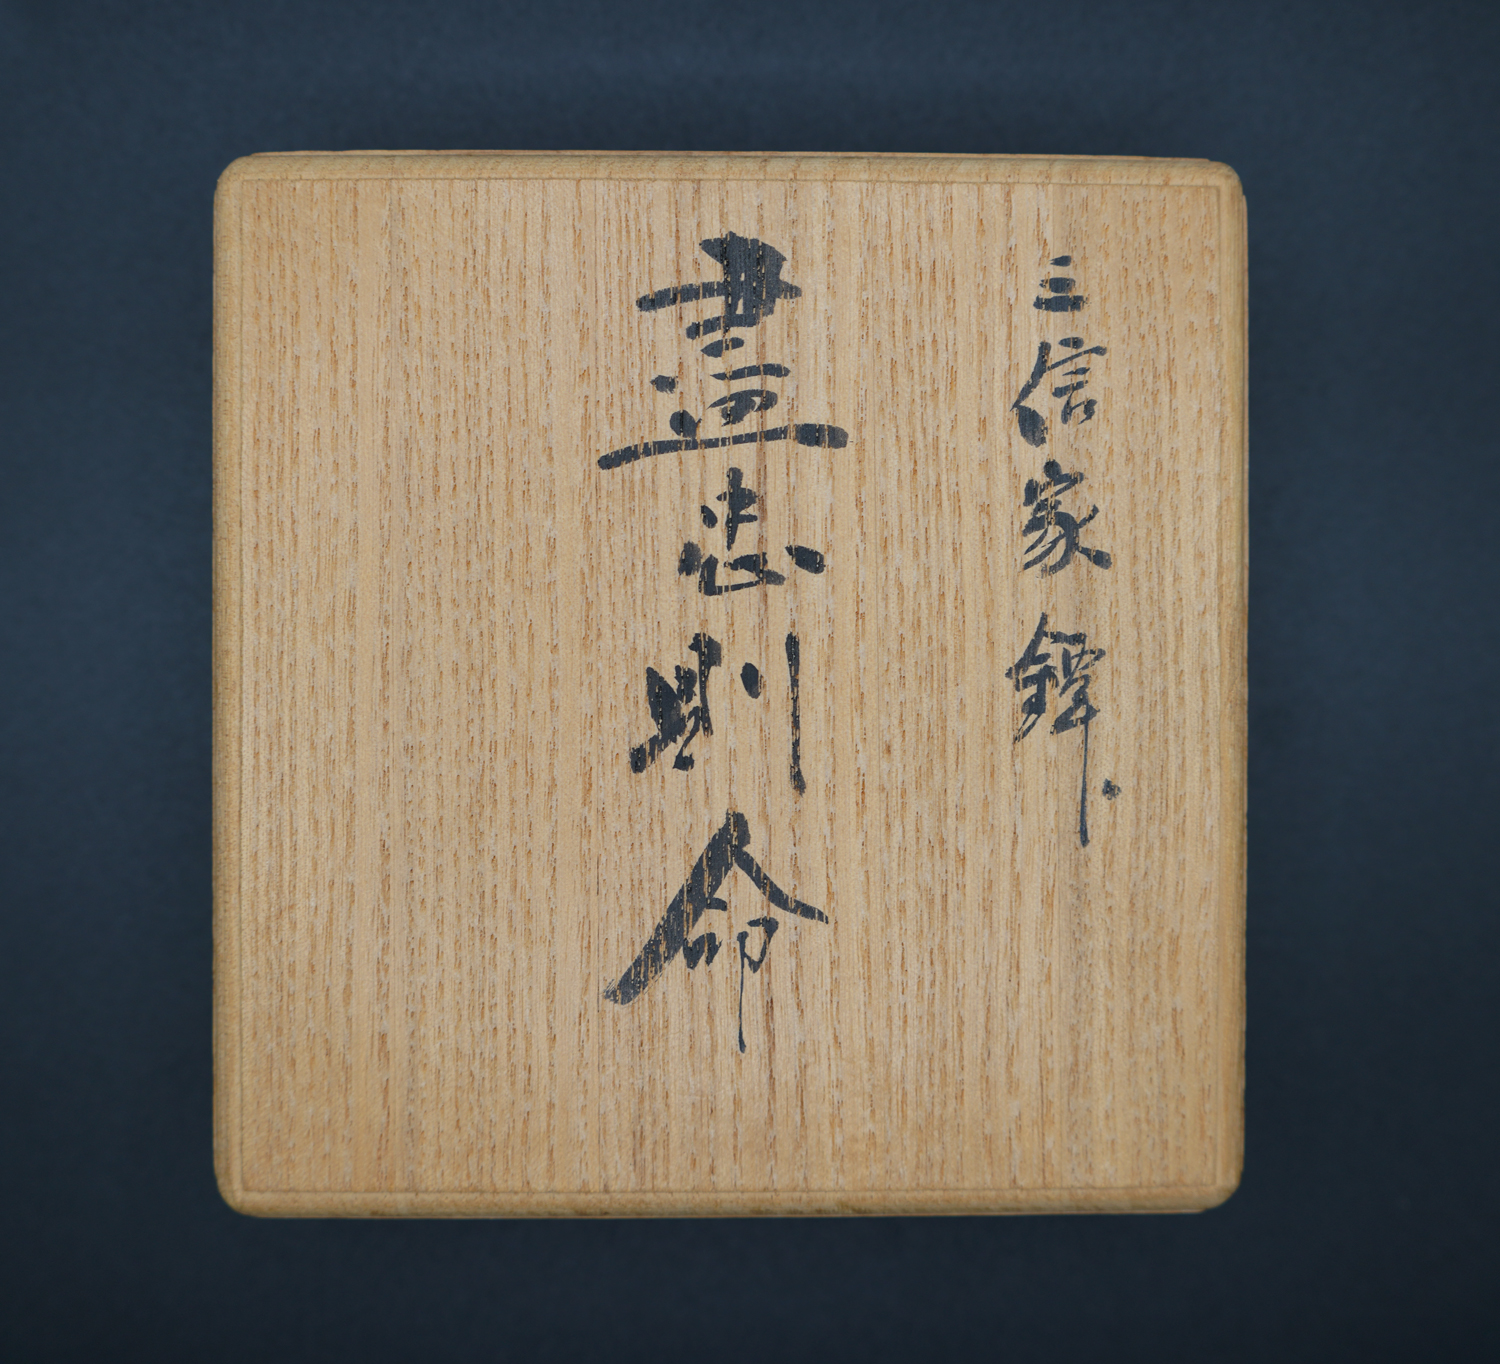 三信家鐔
盡忠則命